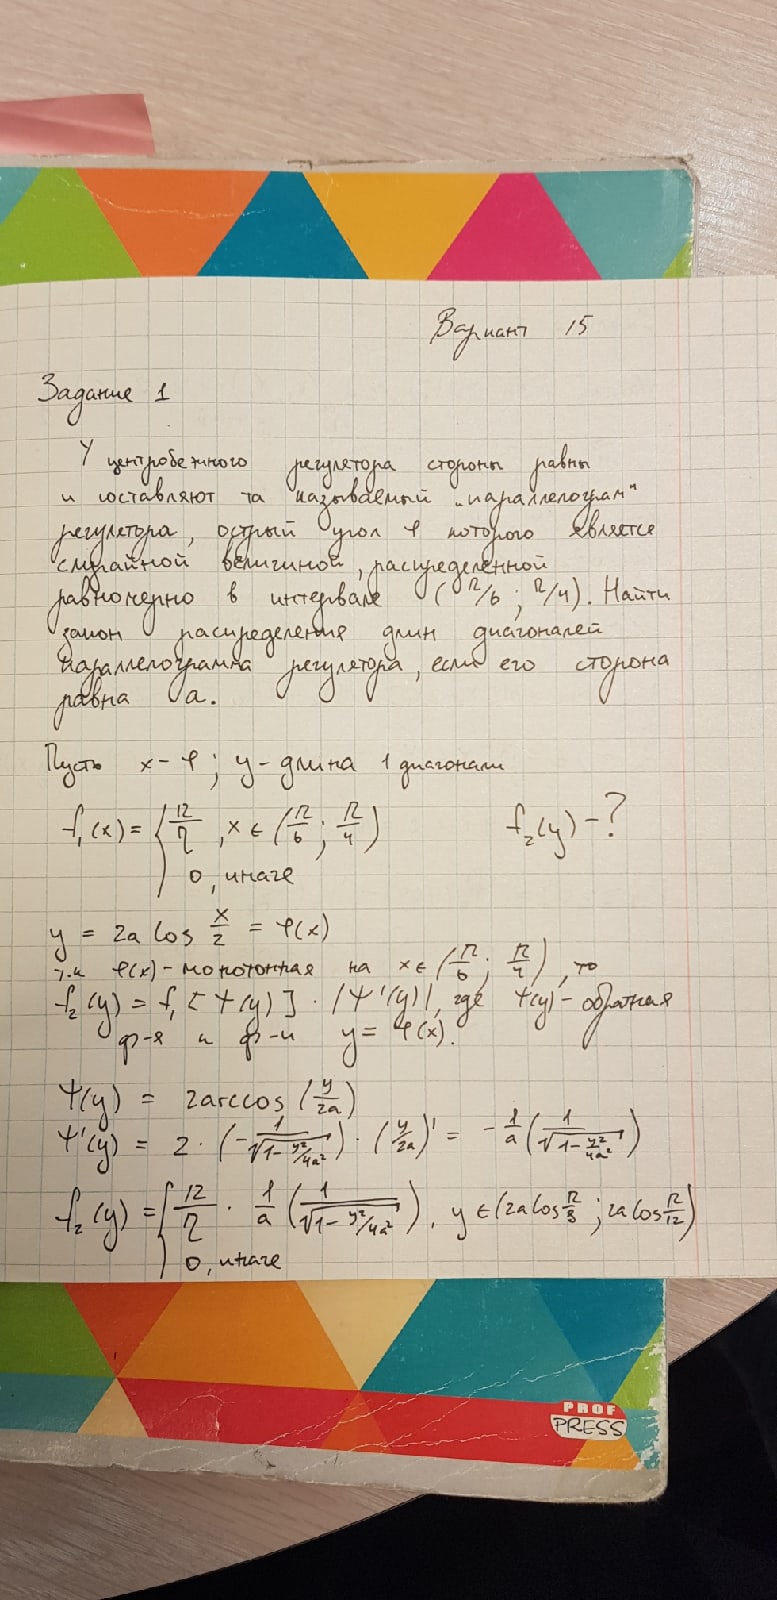 Вариант 15
Задание 1
У центробежного регулятора стороны равны
и составляют та называемый „параллелограм"
регулятора, острый угол φ которого является
случайной величиной, распределенной
равномерно в интервале (π/6 ; π/4). Найти
закон распределения длин диагоналей
параллелограмма регулятора, если его сторона
равна a.
Пусть x - φ ; y - длина 1 диагонали
f₁(x) = { 12/π , x ∈ (π/6 ; π/4)
0, иначе
f₂(y) - ?
y = 2a cos x/2 = φ(x)
т.к φ(x) - монотонная на x ∈ (π/6 ; π/4), то
f₂(y) = f₁[ψ(y)] · |ψ'(y)|, где ψ(y) - обратная
ф-я к ф-и y = φ(x).
ψ(y) = 2arccos (y/2a)
ψ'(y) = 2 · (- 1/√(1 - y²/4a²)) · (y/2a)' = - 1/a (1/√(1 - y²/4a²))
f₂(y) = { 12/π · 1/a (1/√(1 - y²/4a²)), y ∈ (2a cos π/8 ; 2a cos π/12)
0, иначе
PROF
PRESS